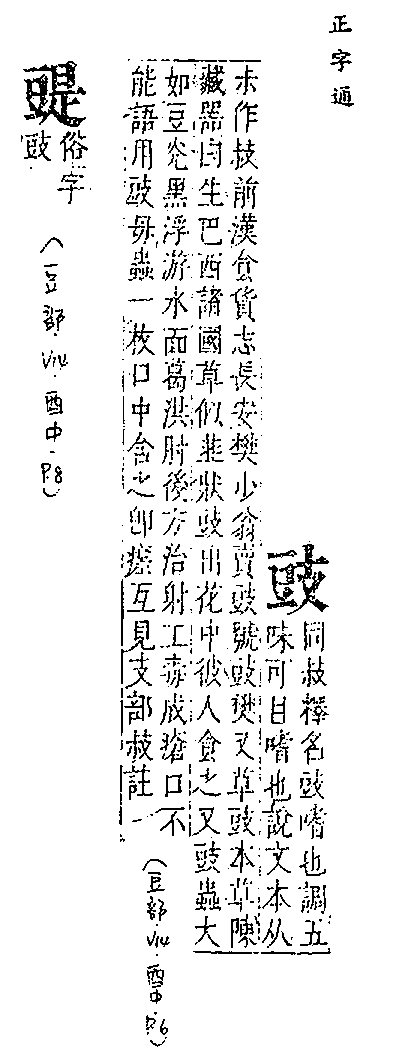 正字通
豉
同敊釋名豉嗜也調五
味可甘嗜也說文本从
尗作敊前漢食貨志長安樊少翁賣豉號豉樊又草豉本草陳
藏器曰生巴西諸國草似韭狀豉出花中彼人食之又豉蟲大
如豆光黑浮游水面葛洪肘後方治射工毒成瘡口不
能語用豉毋蟲一枚口中含之卽瘥互見支部敊註
(豆部.V14.酉中.P.6)
䜴
俗字
豉
(豆部.V14.酉中.P.8)